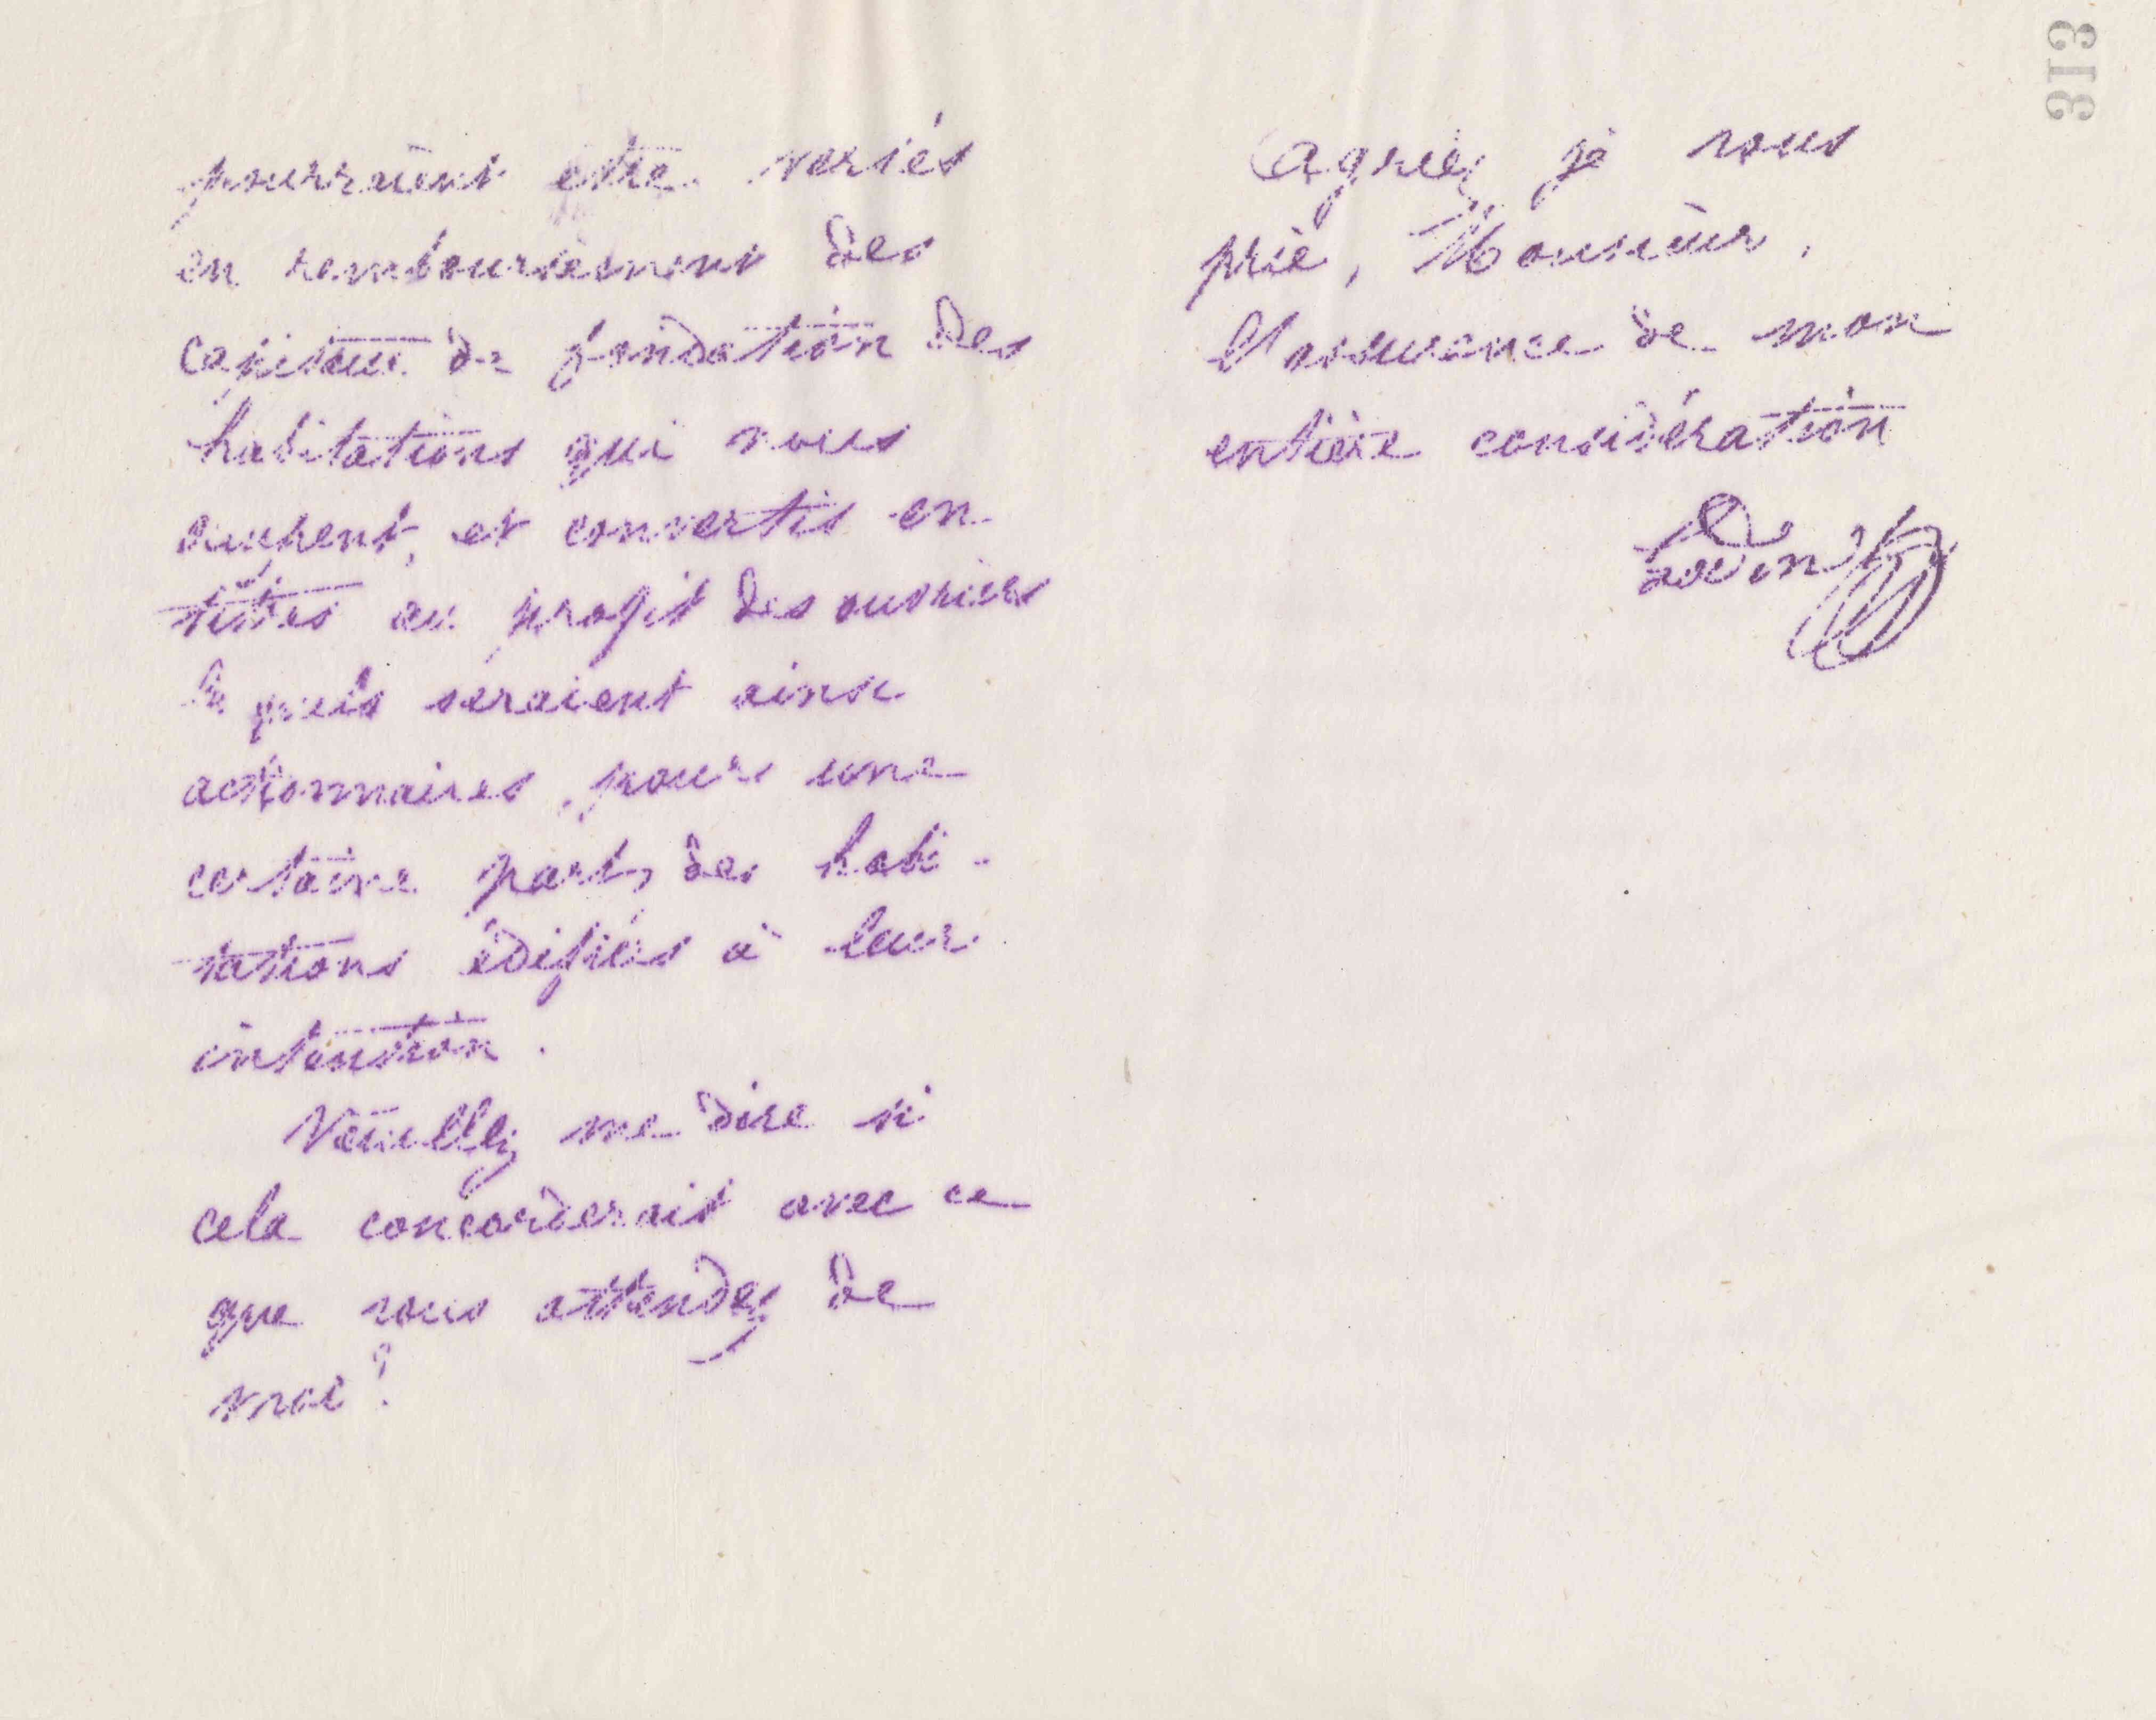 pourraient être versés
en remboursement des
capitaux de fondation des
habitations qui nous
occupent, et convertis en
titres au profit des ouvriers
lesquels seraient ainsi
actionnaires, pour une
certaine part, des habi-
tations édifiées à leur
intention.
Veuillez me dire si
cela concorderait avec ce
que vous attendez de
moi?
Agréez je vous
prie, Monsieur,
l'assurance de mon
entière considération
Godin
313